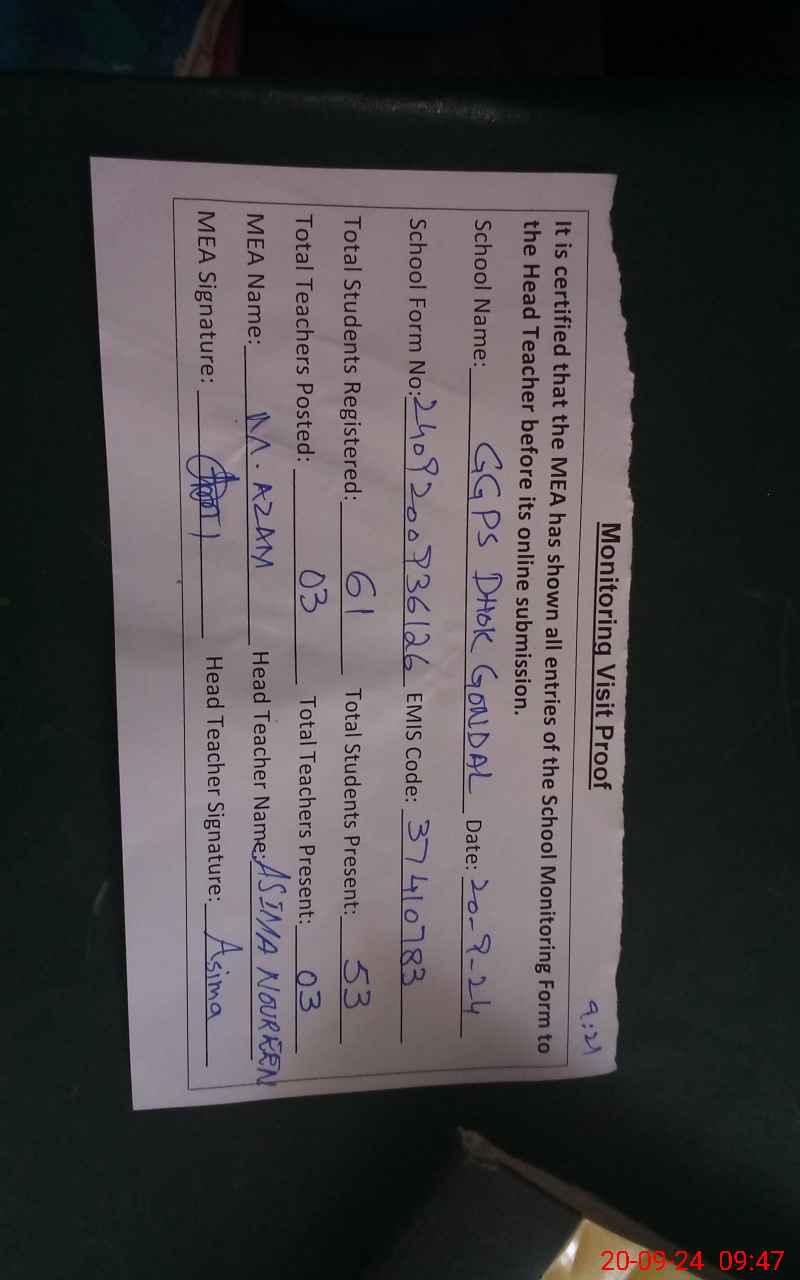 Monitoring Visit Proof
9:21
It is certified that the MEA has shown all entries of the School Monitoring Form to
the Head Teacher before its online submission.
School Name: GGPS DHOK GONDAL Date: 20-9-24
School Form No: 2409200936126 EMIS Code: 37410783
Total Students Registered: 61 Total Students Present: 53
Total Teachers Posted: 03 Total Teachers Present: 03
MEA Name: M. AZAM Head Teacher Name: ASIMA NOUREEN
MEA Signature: Head Teacher Signature: Asima
20-09-24 09:47